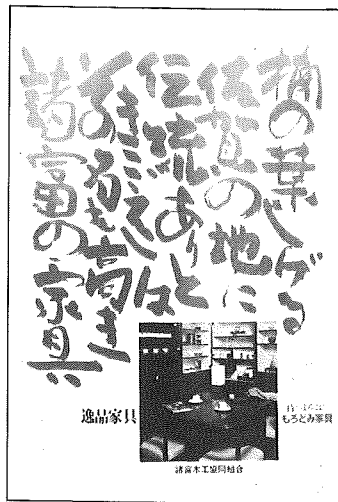 楠の葉しげる
佐賀の地に
伝統ありと
名も高き
諸富の家具
逸品家具
もろとみ家具
諸富木工協同組合